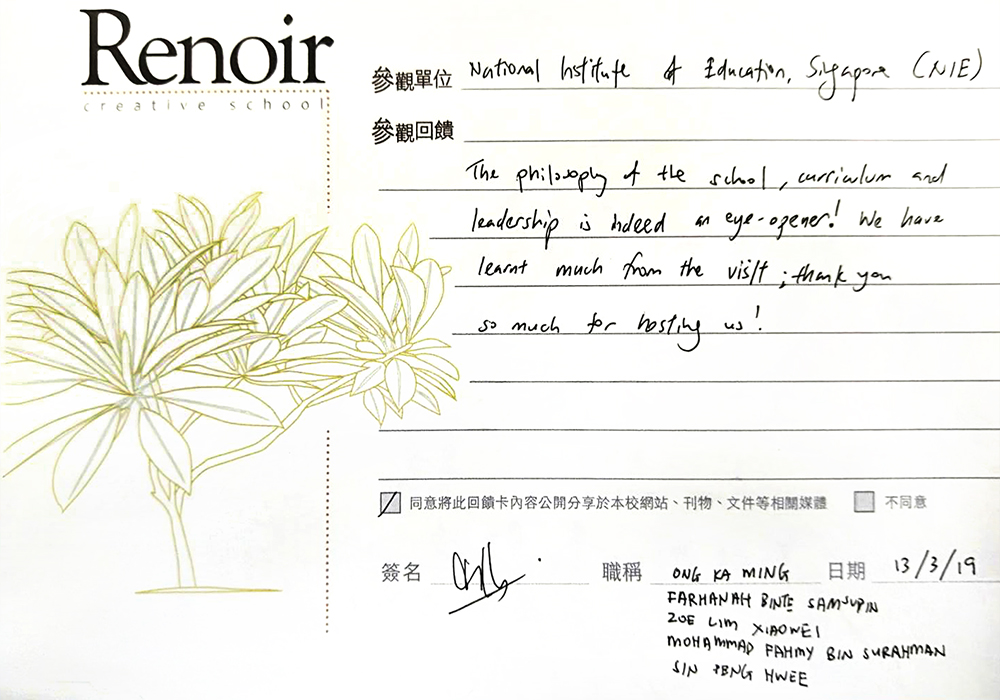 Renoir
creative school
參觀單位 National Institute of Education, Singapore (NIE)
參觀回饋
The philosophy of the school, curriculum and
leadership is indeed an eye-opener! We have
learnt much from the visit; thank you
so much for hosting us!
同意將此回饋卡內容公開分享於本校網站、刊物、文件等相關媒體 不同意
簽名 職稱 ONG KA MING 日期 13/3/19
FARHANAH BINTE SAMSUPIN
ZOE LIM XIAOWEI
MOHAMMAD FAHMY BIN SURAHMAN
SIN PENG HWEE